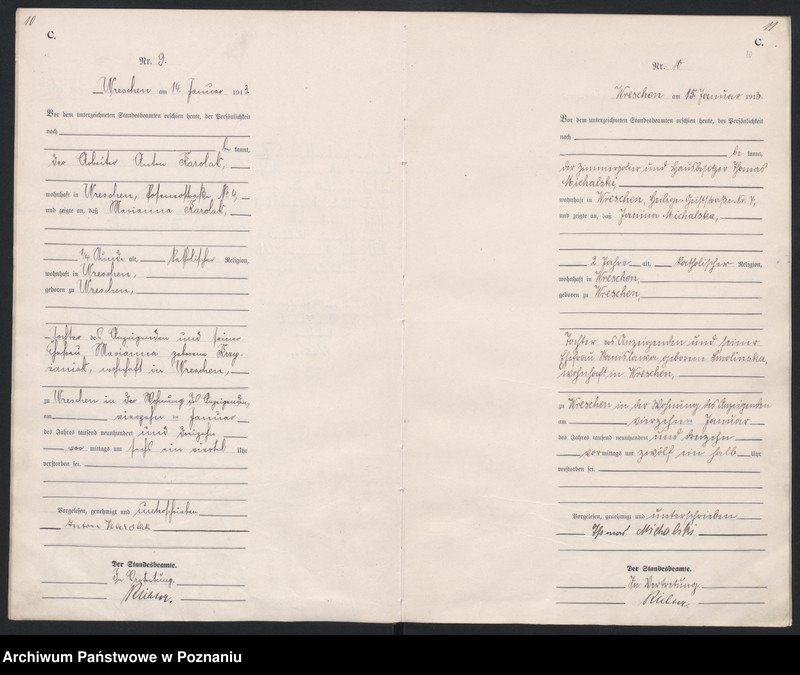 10
C.
Nr. 9.
Wreschen am 14. Januar 1913.
Vor dem unterzeichneten Standesbeamten erschien heute, der Persönlichkeit
nach
be kannt,
der Arbeiter Anton Karolak,
wohnhaft in Wreschen,
und zeigte an, daß Marianna Karolak,
14 alt, katholischer Religion,
wohnhaft in Wreschen,
geboren zu Wreschen,
Tochter des Anzeigenden und seiner
Ehefrau Marianna geborene
wohnhaft in Wreschen,
zu Wreschen in der Wohnung des Anzeigenden,
am vierzehn Januar
des Jahres tausend neunhundert und dreizehn
vor mittags um sechs ein viertel Uhr
verstorben sei.
Vorgelesen, genehmigt und unterschrieben
Anton Karolak
Der Standesbeamte.
In Vertretung.
11
C.
Nr. 10
Wreschen am 15. Januar 1913.
Vor dem unterzeichneten Standesbeamten erschien heute, der Persönlichkeit
nach
be kannt,
der Zimmerpolier und Hausbesitzer Thomas
Michalski,
wohnhaft in Wreschen, Heilige-Geiststraße Nr.
und zeigte an, daß Janina Michalska,
2 Jahre alt, katholischer Religion,
wohnhaft in Wreschen,
geboren zu Wreschen,
Tochter des Anzeigenden und seiner
Ehefrau Stanislawa, geborene Smolinska,
wohnhaft in Wreschen,
zu Wreschen in der Wohnung des Anzeigenden
am vierzehn Januar
des Jahres tausend neunhundert und dreizehn
vor mittags um zwölf ein halb Uhr
verstorben sei.
Vorgelesen, genehmigt und unterschrieben
Thomas Michalski
Der Standesbeamte.
In Vertretung.
Archiwum Państwowe w Poznaniu